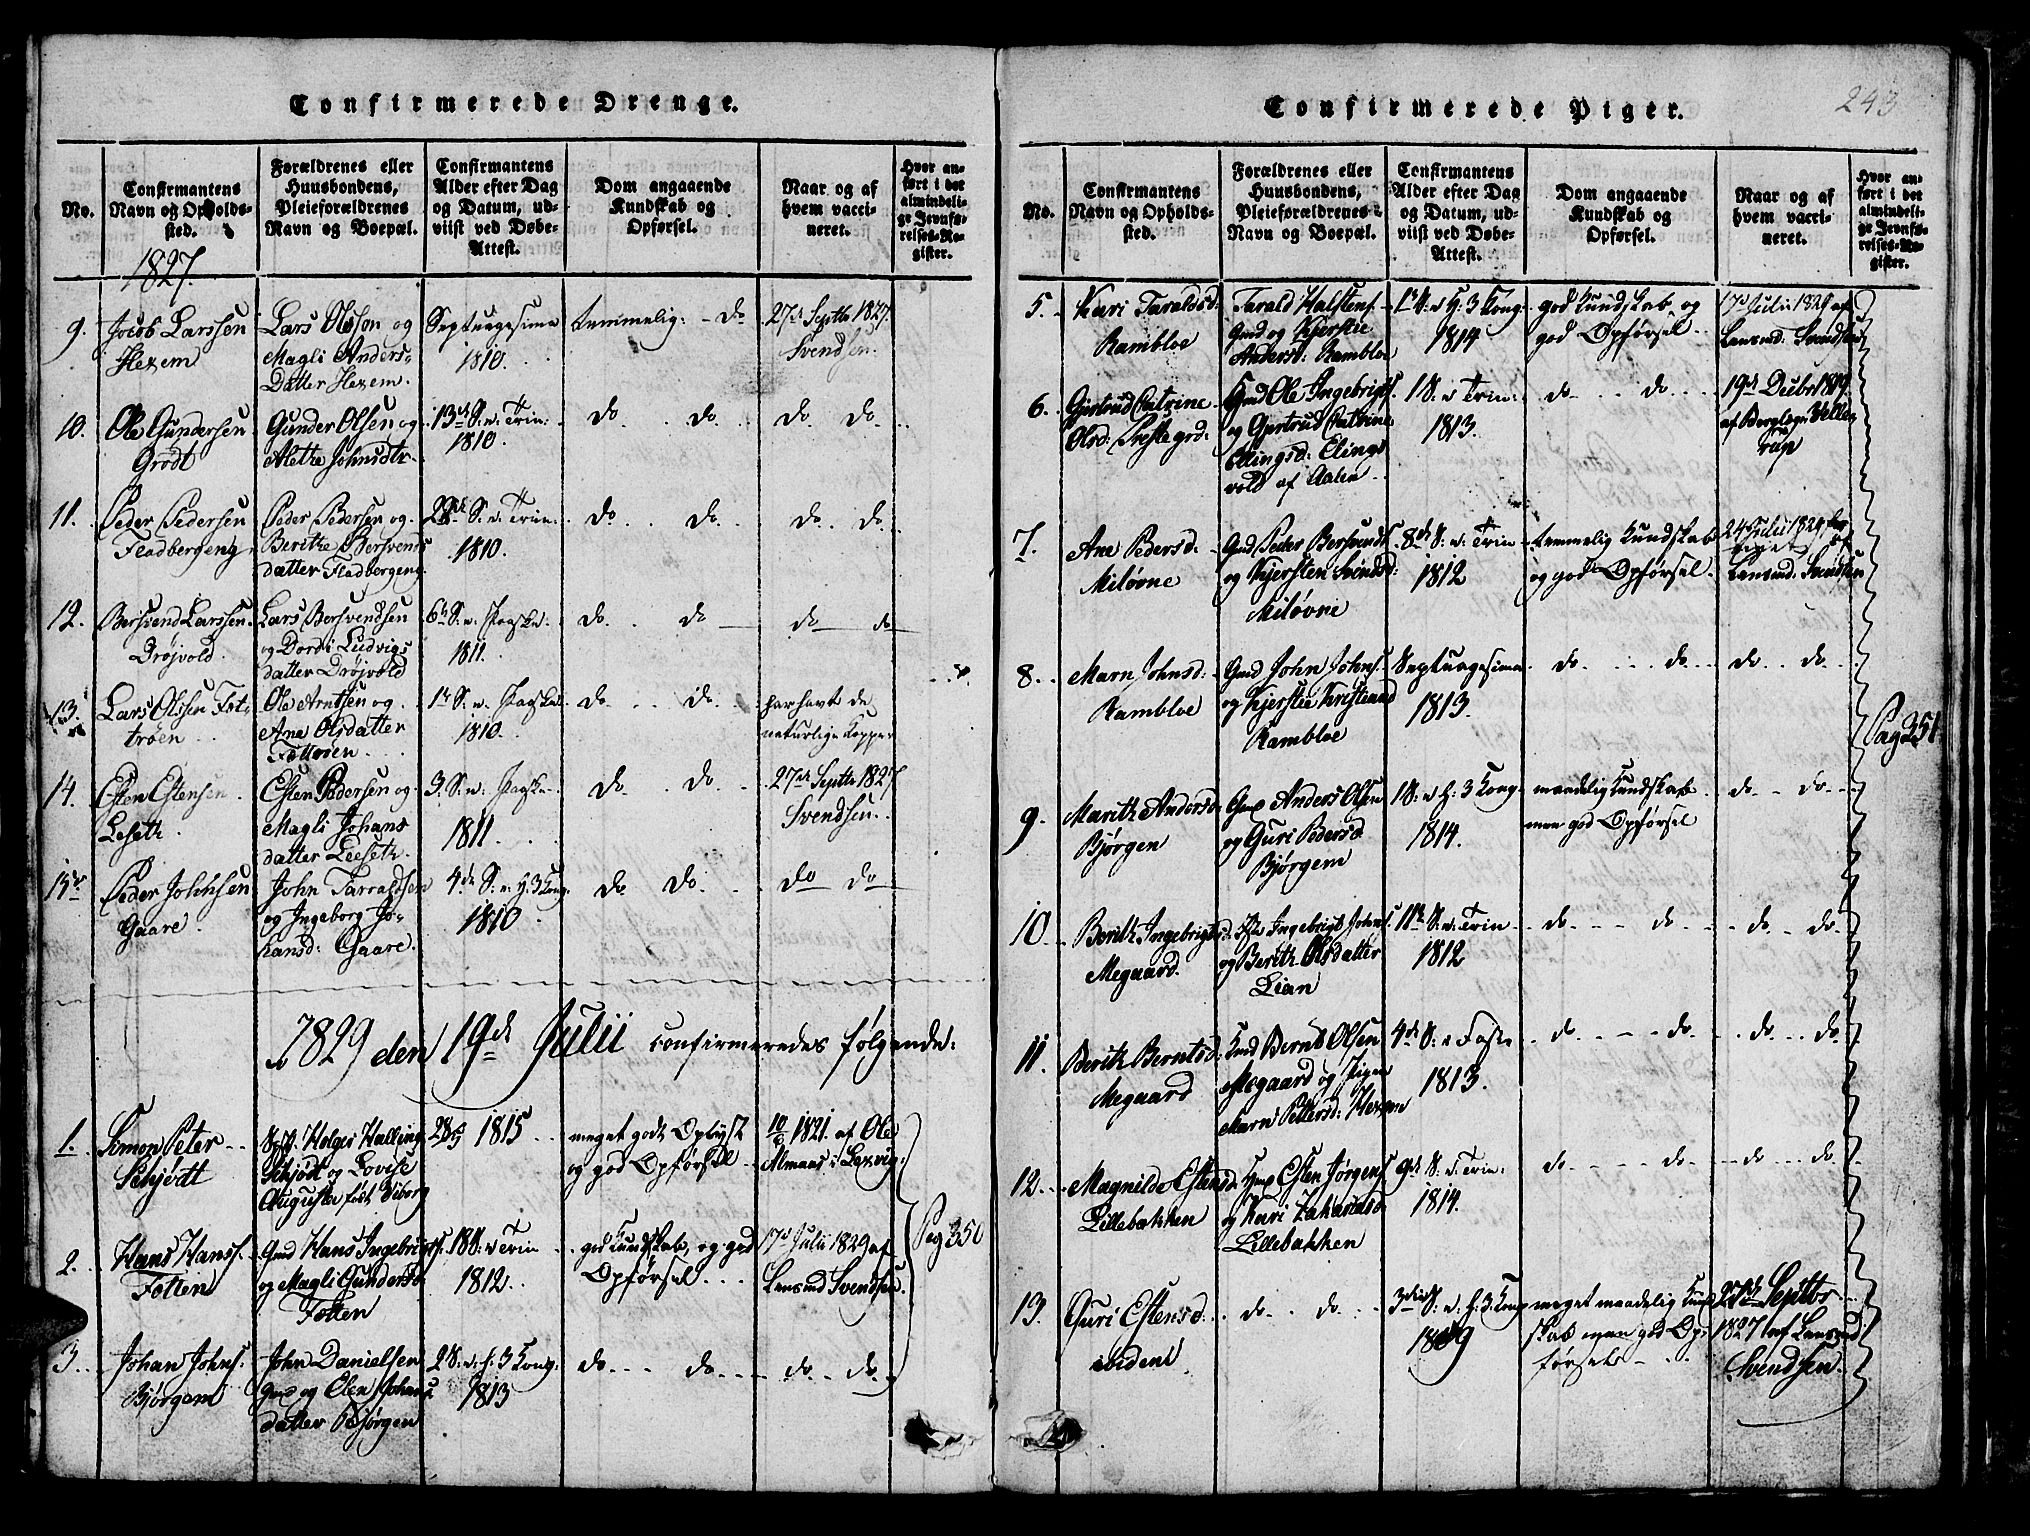 Confirmerede Drenge.
No.
Confirmantens Navn og Opholds-sted.
Forældrenes eller Huusbondens, Pleieforældrenes Navn og Boepæl.
Confirmantens Alder efter Dag og Datum, ud-viist ved Døbe-Attest.
Dom angaaende Kundskab og Opførsel.
Naar og af hvem vacci-neret.
Hvor an-ført i det almindeli-ge Jevnfø-relses-Re-gister.
1827.
9. Jocob Larssen Hexem
Lars Olsson og Magli Anders-Datter Hexem.
Septuagesima 1810.
temmelig: - do
27d Septbr 1827. Svendsen.
10. Ole Gundersen Grodt
Gunder Olsen og Alethe Johnsdtr.
13de S. n. Trin: 1810.
do. do.
do do.
11. Peder Pedersen Fladbergeng
Peder Pedersen og Berithe Bersvends datter Fladbergeng
S. n. Trin: 1810.
do. do.
do. do.
12. Bersvend Larssen Drøjvold
Lars Bersvendsen og Dordi Ludvigs datter Drøjvold
6te S. n. Paaske. 1811.
do. do.
do do
13. Lars Olssen Fot-trøen
Ole Arntsen og Ane Olsdatter Fottrøen
1te S. n. Paaske 1810.
do. do.
har havt de naturlige Kopper
14. Esten Estensen Leseth.
Esten Pedersen og Magli Johans datter Leeseth.
3. S. n. Paaske 1811.
do. do.
27de Septbr 1827 Svendsen.
15. Peder Johnsen Gaare.
John Tarraldsen og Ingeborg Jo-hansd: Gaare.
4de S. n. H. 3 Kong. 1810.
do do.
do do
1829 den 19de Julii confirmeredes følgende:
1. Simon Peter Schjødt
Holger Halling Schjødt og Lovise Auguste født Viborg
1815
meget godt Oplyst og god Opførsel
1821. af Ole Almaas i Lexvig.
2. Hans Hanss. Fotten
Gmd Hans Ingebrigts. og Magli Gundersd Fotten
18 S: n Trin 1812.
god Kundskab, og god Opførsel
17d Julii 1829 af Lensmd Svendsen.
Pag 350
3. Johan Johns: Bjørgem
John Danielsen Gmd og Elen Johans datter Bjørgen
2 S. n. H. 3 Kong: 1813
do. do.
do. do.
Confirmerede Piger.
243
No.
Confirmantens Navn og Opholds-sted.
Forældrenes eller Huusbondens, Pleieforældrenes Navn og Boepæl.
Confirmantens Alder efter Dag og Datum, ud-viist ved Døbe-Attest.
Dom angaaende Kundskab og Opførsel.
Naar og af hvem vacci-neret.
Hvor an-ført i det almindeli-ge Jevnfø-relses-Re-gister.
5. Kari Taraldsd: Rambloe
Tarald Halstens. Gmd og Kjerstie Andersd: Rambloe
1te S. n H. 3 Kong. 1814
god Kundskab og god Opførsel
17d Julii 1829 af Lensmd: Svendsen
6. Gjertrud Catrine Olsd: Præstegrd:
Gmd Ole Ingebrigts. og Gjertrud Catrine Ellingsd: Elings vold af Aalen
1 S. n Trin: 1813.
do. do.
19de af
7. Ane Pedersd. Miløvne
Gmd Peder Bersvends. og Kjersten Svendsd: Miløvne
8de S. n. Trin 1812
temmelig Kundskab og god Opførsel.
24 Julii 1829 af Lensmd. Svendsen
8. Marn Johnsd: Rambloe
Gmd John Johns. og Kjerstie Rambloe
Septuagesima 1813.
do. do.
do. do.
Pag 351
9. Marith Andersd. Bjørgen
Anders Olsen og Guri Pedersd. Bjørgem
1 S. n H. 3 Kong. 1814.
maadelig Kundskab men god Opførsel
do. do.
10. Berith Ingebrigtsd. Megaard.
Ingebrigt Johns og Berith Olsdatter Lian
11te S. n. Trin 1812
do. do.
do. do.
11. Berith Berntsd. Megaard
Bernt Olsen Megaard og Pigen Marn Pettersd: Hexem
4de S. n Faste 1813.
do. do.
do. do.
12. Magnilde Estensd. Lillebakken
Esten Jørgens. og Kari Zakariasd Lillebakken
9de S. n. Trin: 1814.
do. do.
do. do.
13. Guri Estensd. ibident
do. do.
3die S. n. H. 3 Kong 1809
meget maadelig Kund skab men god Op-førsel
27de Septbr 1827 af Lensmd Svendsen.